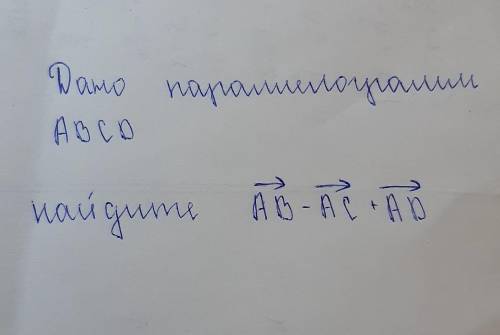 Дано параллелограмм
ABCD
найдите AB - AC + AD